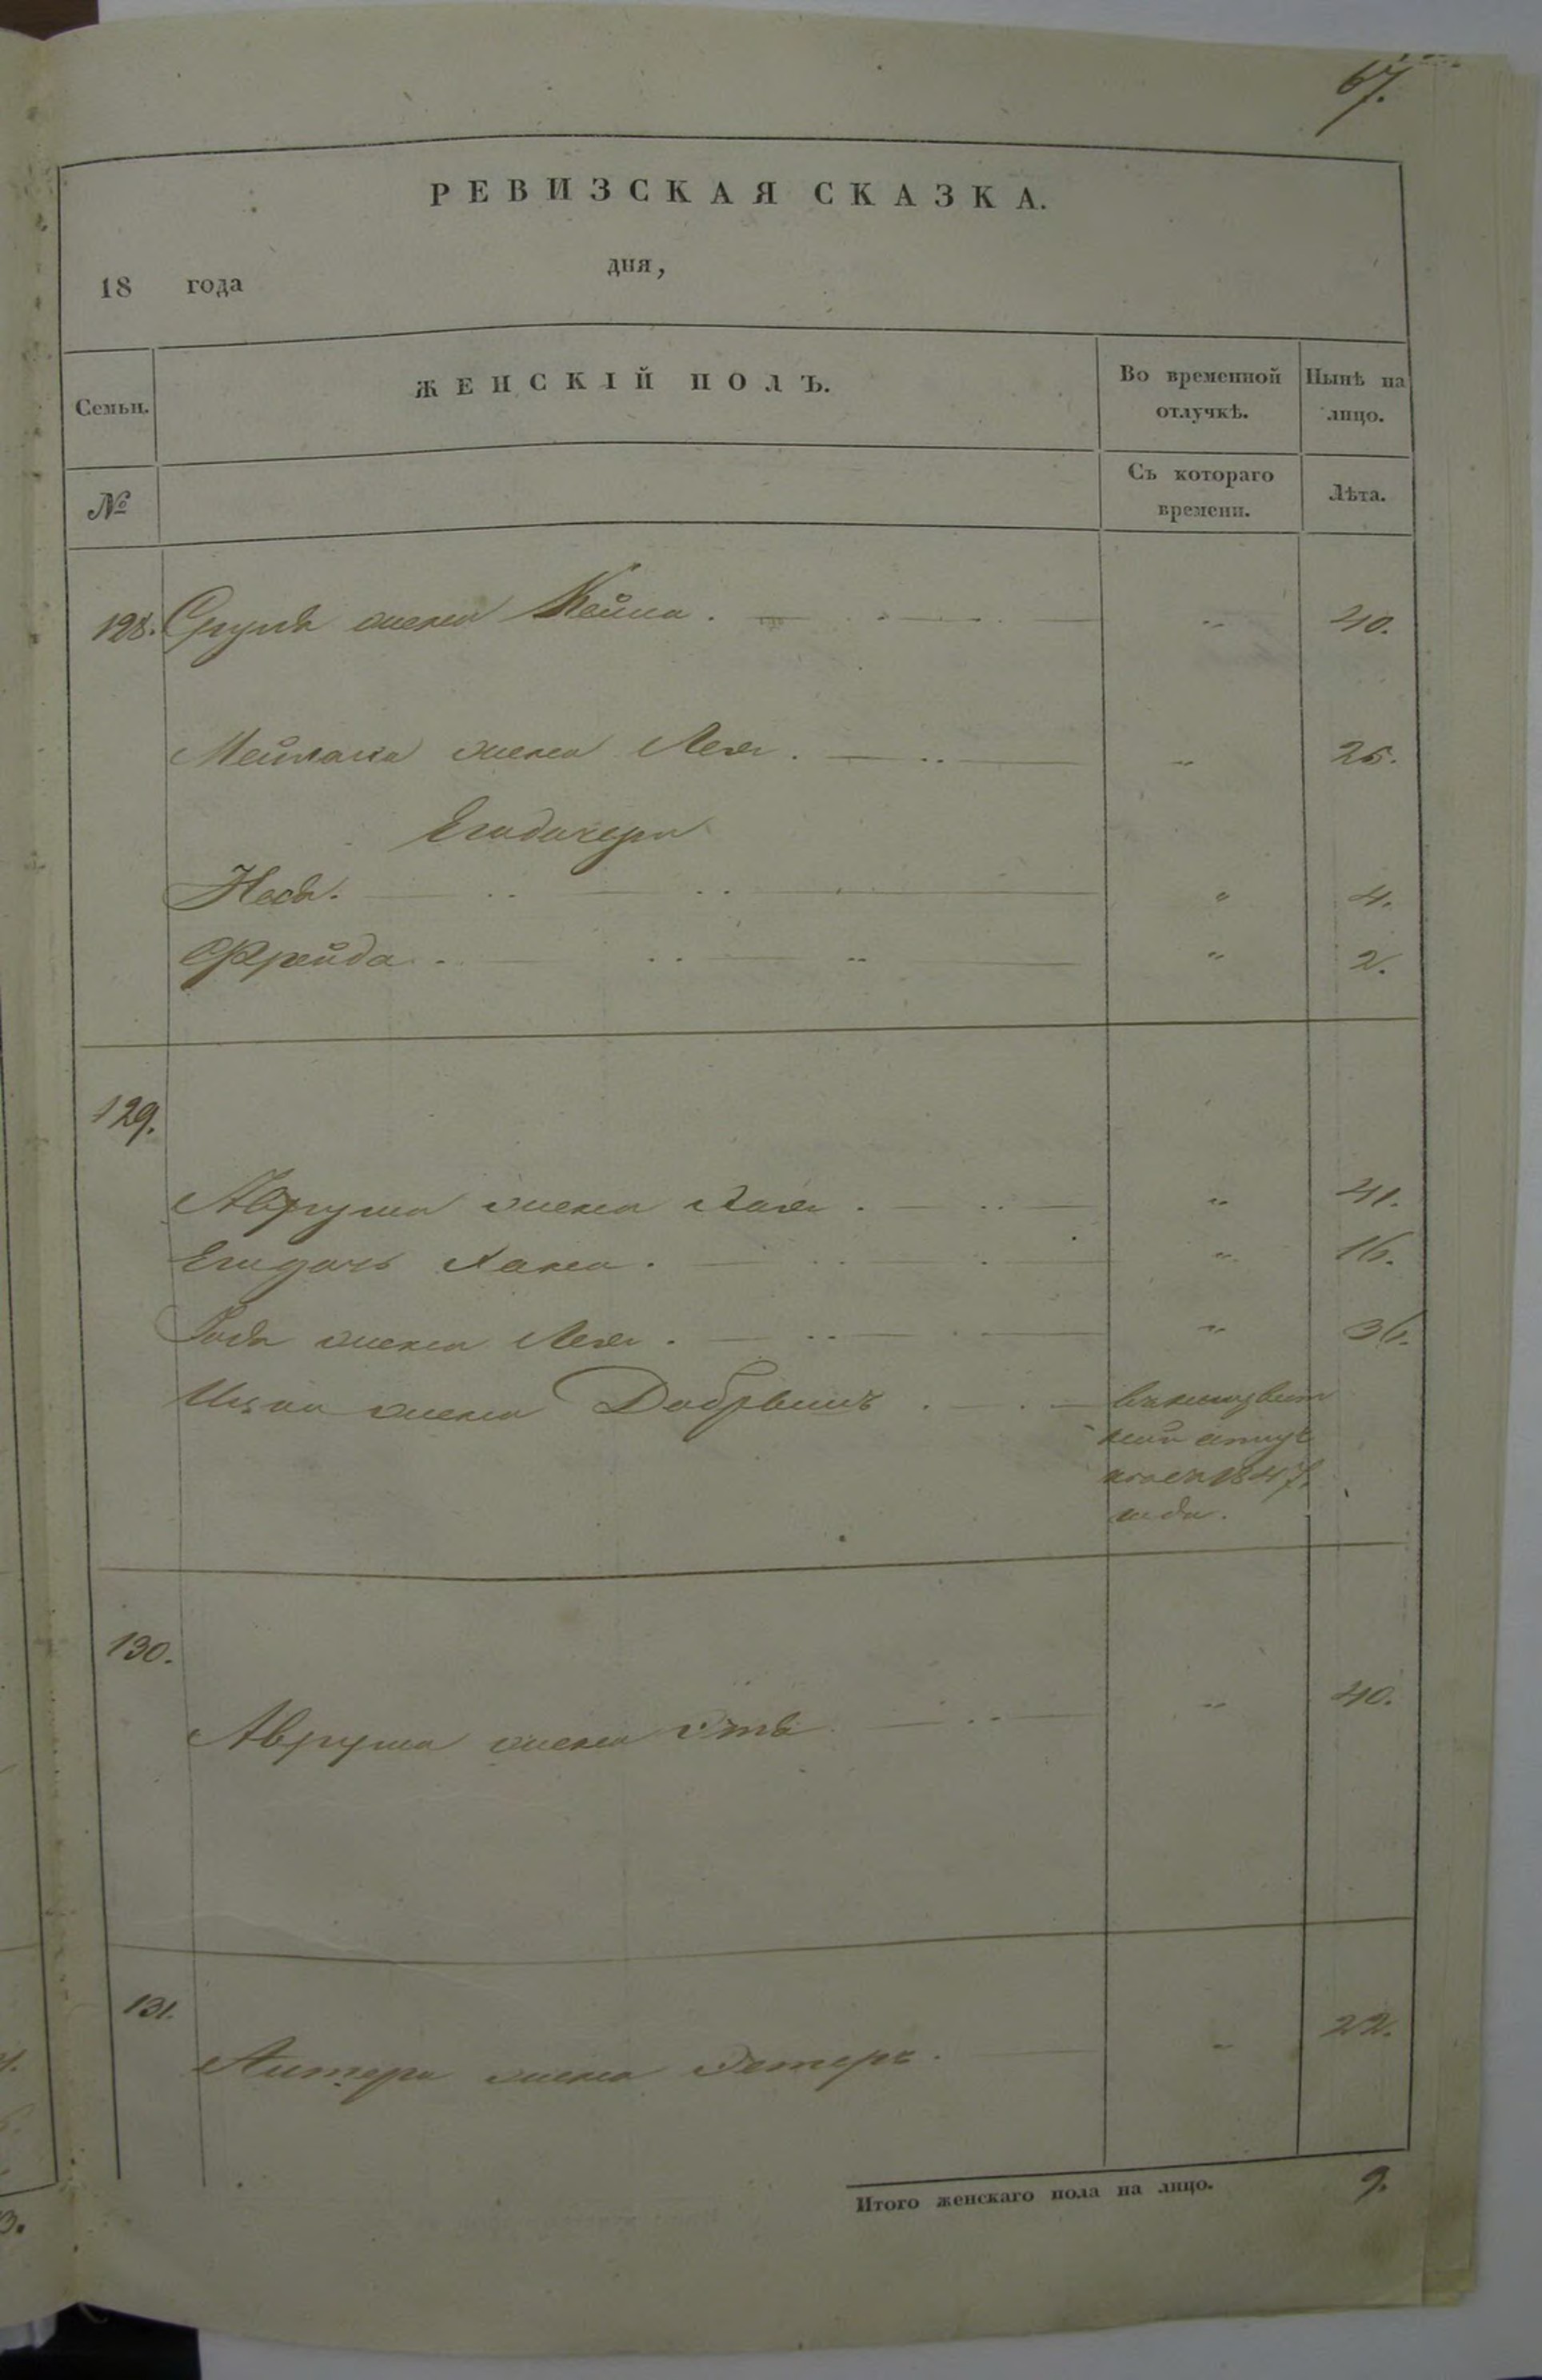 67.
РЕВИЗСКАЯ СКАЗКА.
18 года дня,
Семьи. ЖЕНСКІЙ ПОЛЪ. Во временной отлучкѣ. Нынѣ на лицо.
№ Съ котораго времени. Лѣта.
128. жена Кейла . " 40.
жена Лея . " 25.
Его дочери
Неся. " 4.
Фрейда. " 2.
129.
Аврума жена Хая . " 41.
Его дочь Хана . " 16.
жена Лея . " 36.
Ицка жена Добрышъ
1847
года.
130.
Аврума жена " 40.
131.
жена Эстеръ. " 22.
Итого женскаго пола на лицо. 9.